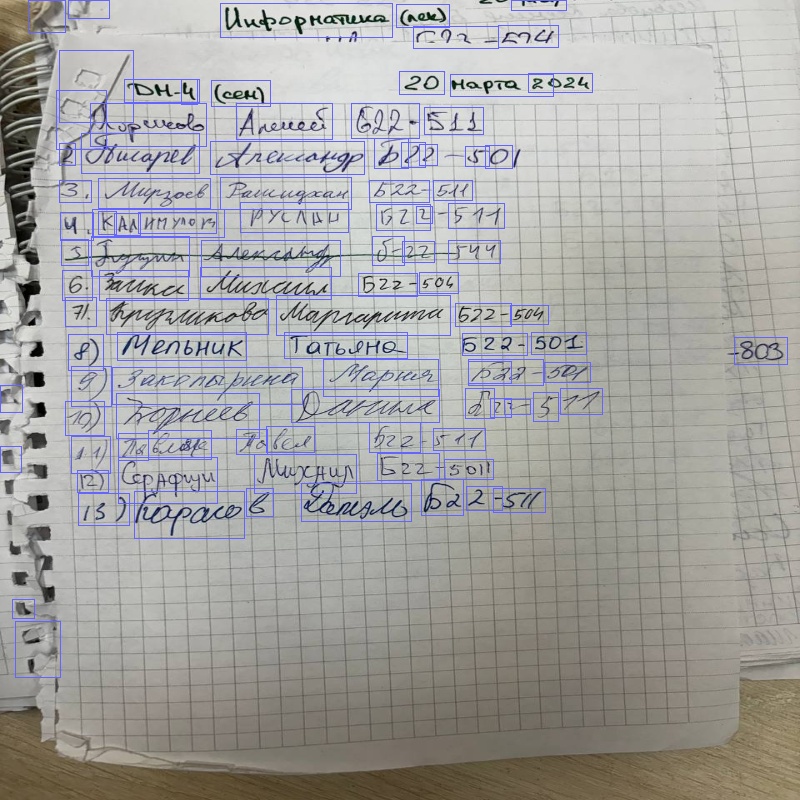 Информатика (лек)
Б22-574
ДМ-4 (сем) 20 марта 2024
Алексей Б22-511
2. Писарев Александр Б22-501
3. Мирзоев Рашидхан Б22-511
4. РУСЛАН Б22-511
5. Александр Б-22 544
6. Заика Михаил Б22-504
7. Кругликова Маргарита Б22-504
8) Мельник Татьяна Б22-501
-803
9) Закопырина Мария Б22-501
10) Корнеев Данила Б22-511
11) Павлюк Павел Б22-511
12) Серафим Михаил Б22-501
13) Карасов Даниэль Б22-511